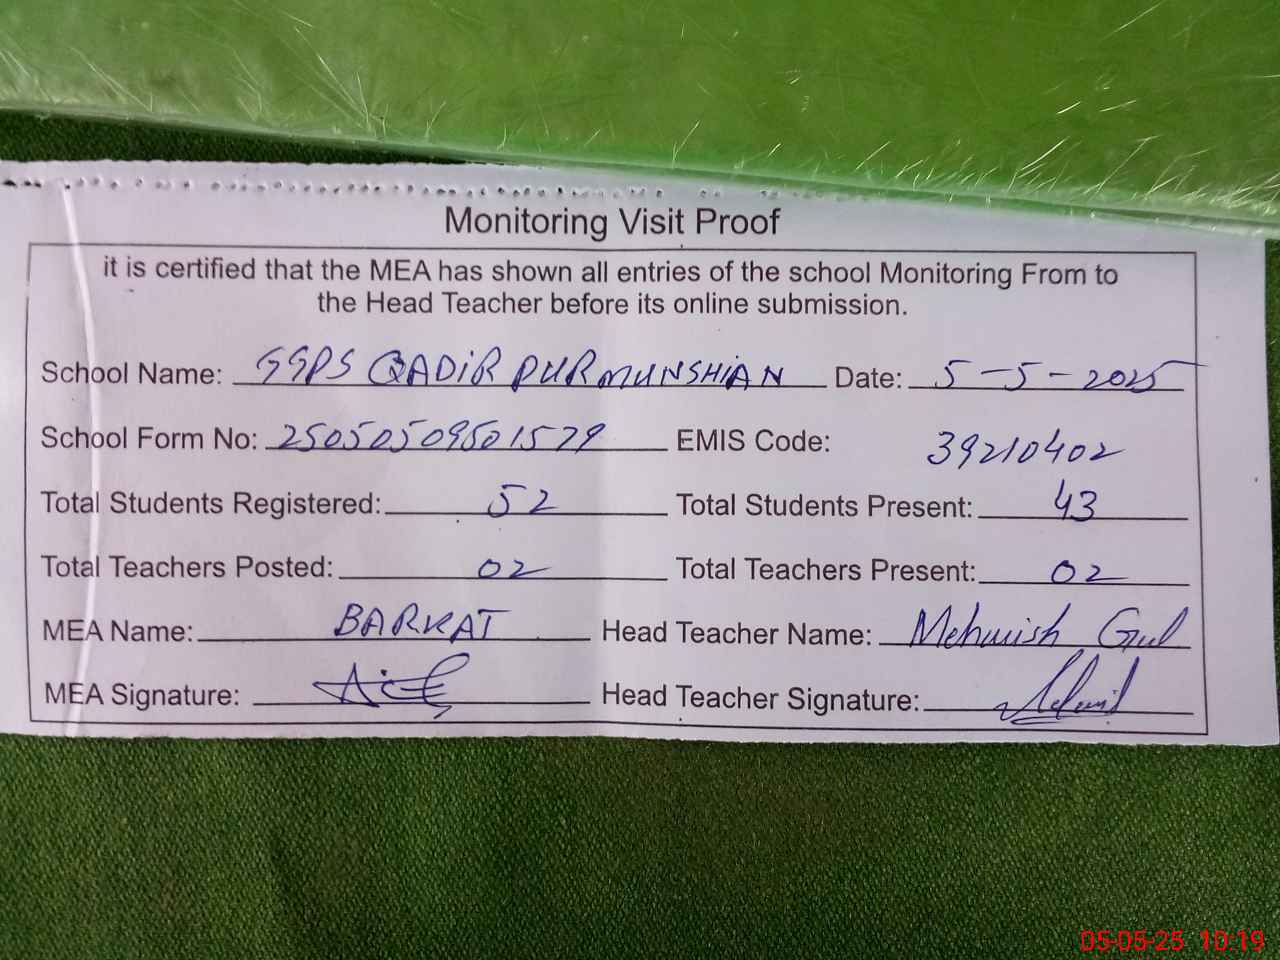 Monitoring Visit Proof
it is certified that the MEA has shown all entries of the school Monitoring From to
the Head Teacher before its online submission.
School Name: GGPS QADIR PUR MUNSHIAN Date: 5-5-2025
School Form No: 25050509501579 EMIS Code: 39210402
Total Students Registered: 52 Total Students Present: 43
Total Teachers Posted: 02 Total Teachers Present: 02
MEA Name: BARKAT Head Teacher Name: Mehwish Gul
MEA Signature: Head Teacher Signature:
05-05-25 10:19